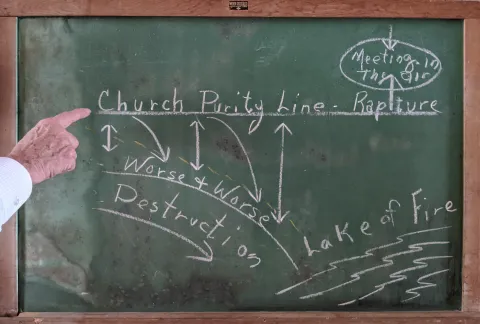 Meeting in
The air
Church Purity Line - Rapture
Worse & Worse
Destruction
Lake of Fire